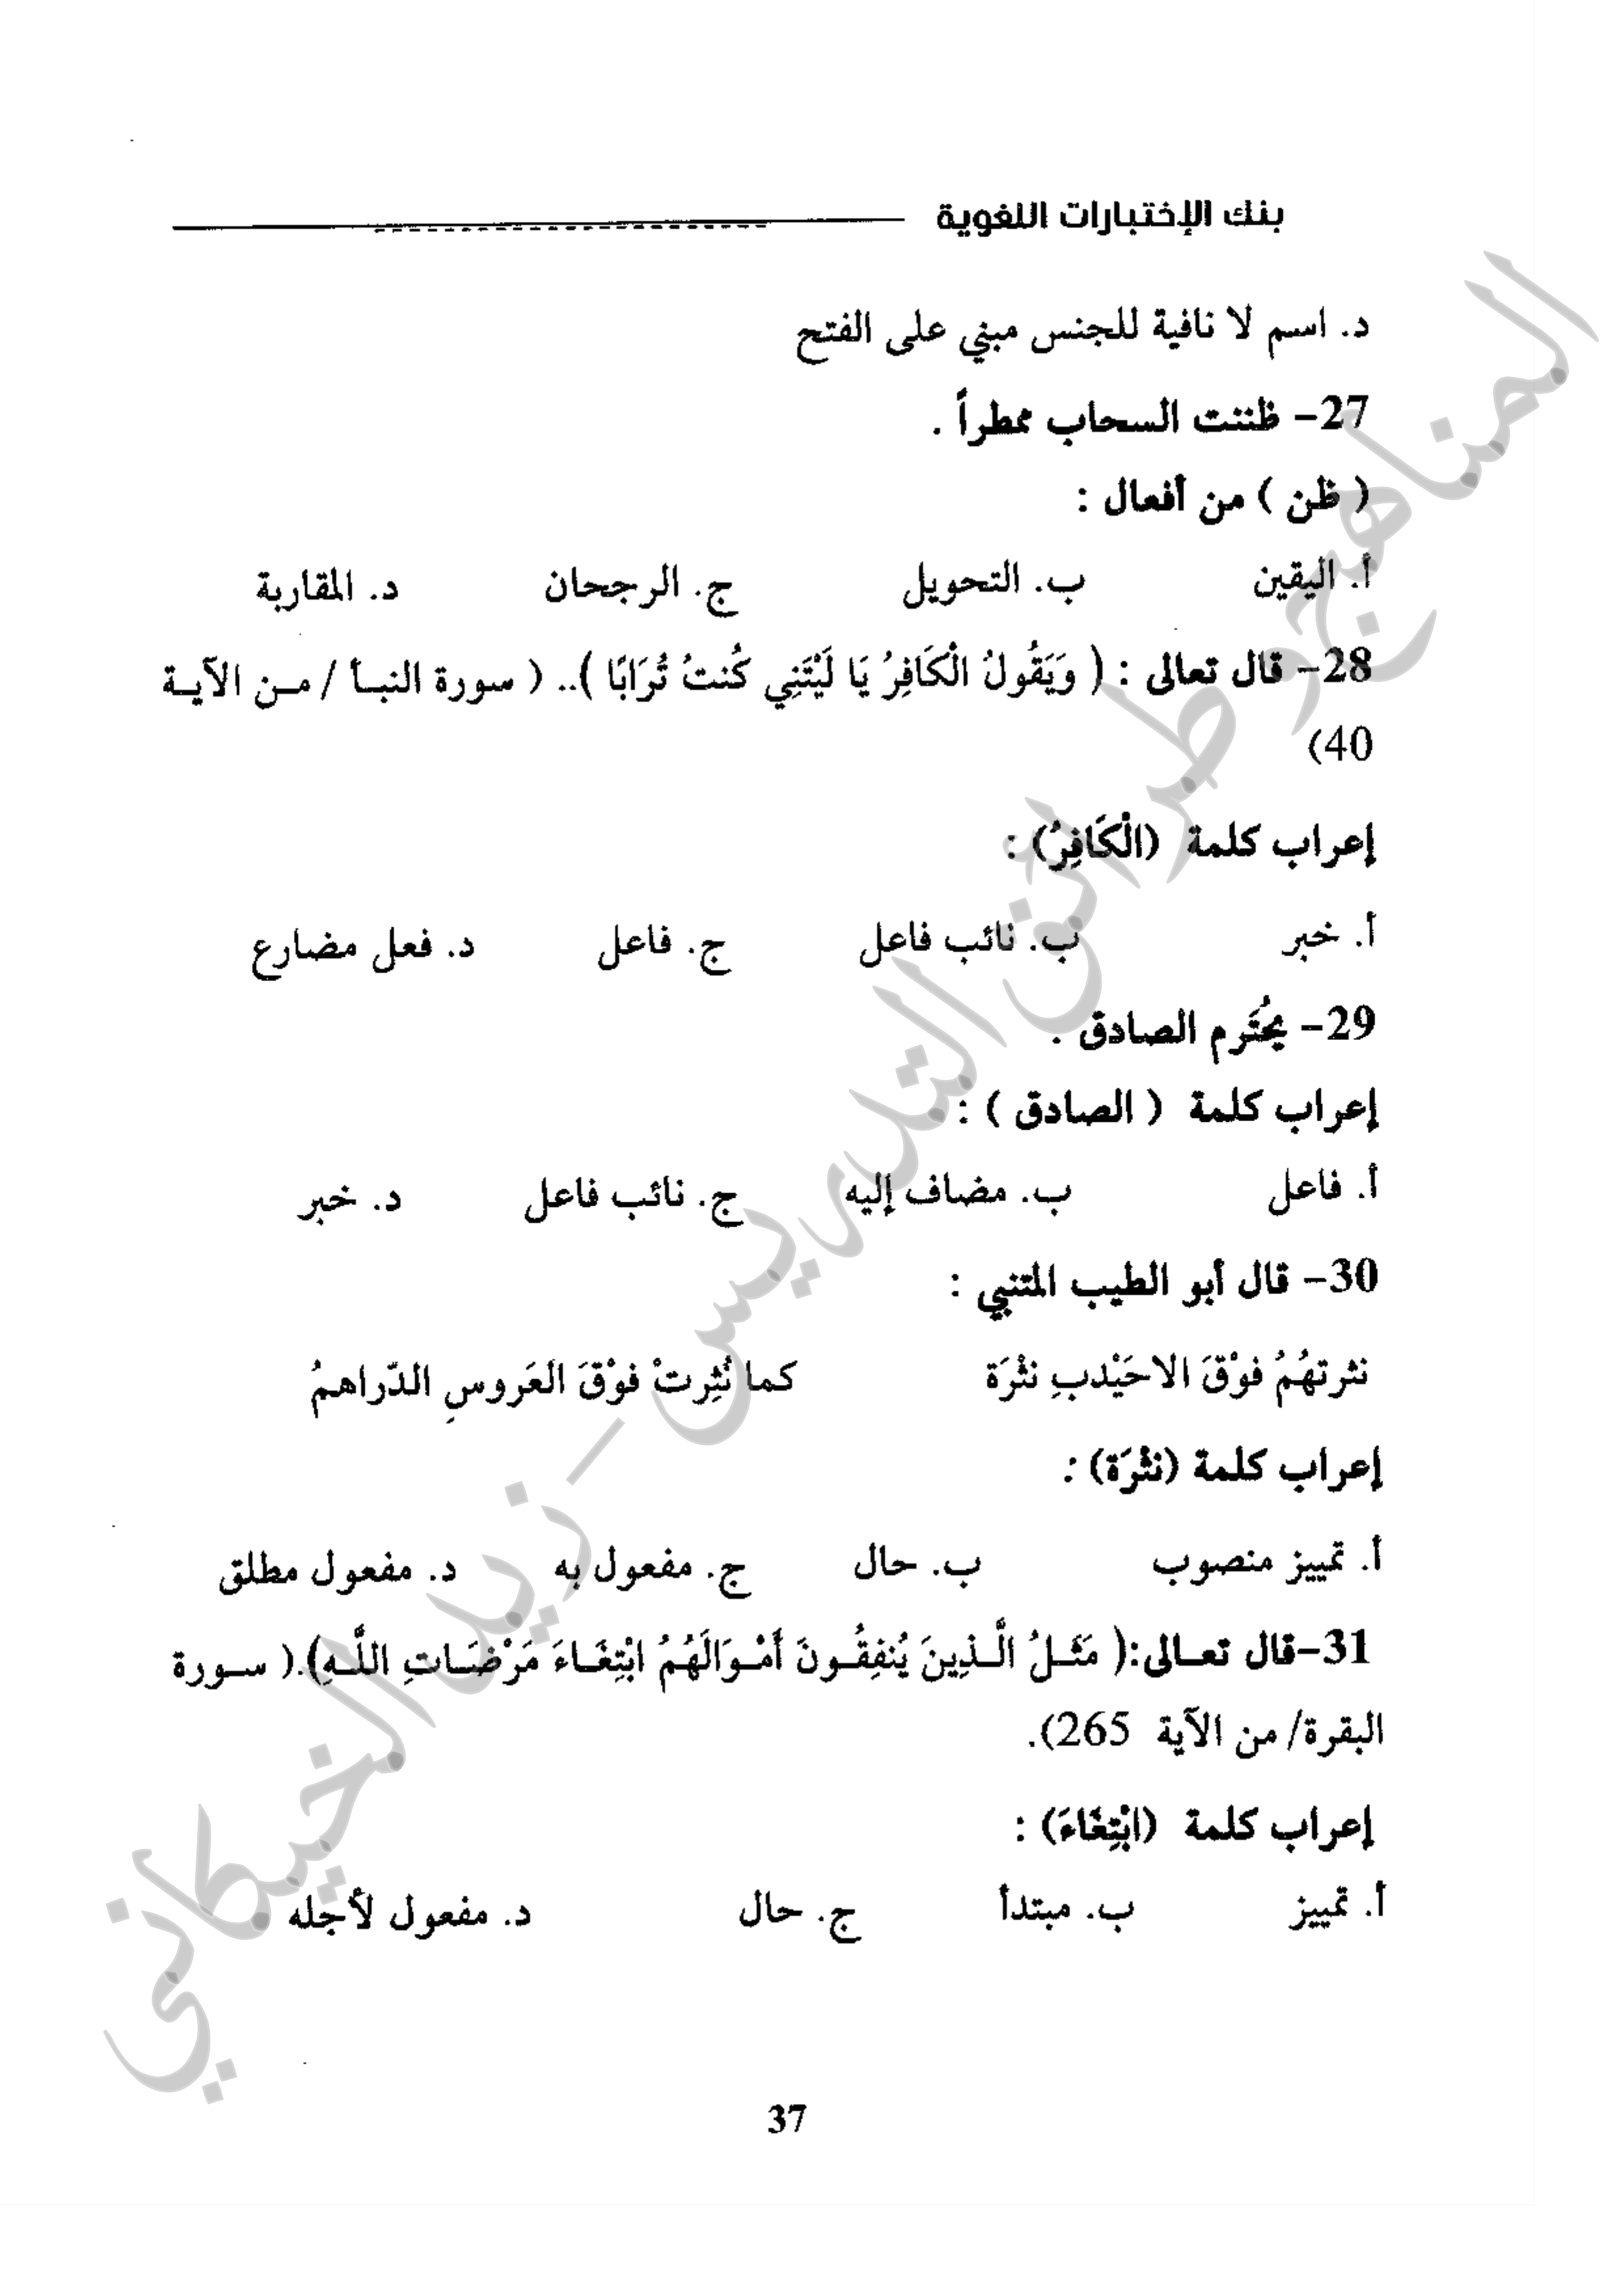 بنك الإختبارات اللغوية
د. اسم لا نافية للجنس مبني على الفتح
27- ظننت السحاب ممطراً .
( ظن ) من أفعال :
أ. اليقين ب. التحويل ج. الرجحان د. المقاربة
28- قال تعالى : ( وَيَقُولُ الْكَافِرُ يَا لَيْتَنِي كُنتُ تُرَابًا ).. ( سورة النبأ / من الآية
40)
إعراب كلمة (الْكَافِرُ) :
أ. خبر ب. نائب فاعل ج. فاعل د. فعل مضارع
29- يُحتَرم الصادق .
إعراب كلمة ( الصادق ) :
أ. فاعل ب. مضاف إليه ج. نائب فاعل د. خبر
30- قال أبو الطيب المتنبي :
نثرتهُمُ فوْقَ الاحَيْدبِ نثْرَة كما نُثِرتْ فوْقَ العَروسِ الدّراهمُ
إعراب كلمة (نثْرَة) :
أ. تمييز منصوب ب. حال ج. مفعول به د. مفعول مطلق
31-قال تعالى:( مَثَلُ الَّذِينَ يُنفِقُونَ أَمْوَالَهُمُ ابْتِغَاءَ مَرْضَاتِ اللَّهِ).( سورة
البقرة/ من الآية 265).
إعراب كلمة (ابْتِغَاءَ) :
أ. تمييز ب. مبتدأ ج. حال د. مفعول لأجله
37
المناهج وطرائق التدريس – زيد الخيكاني